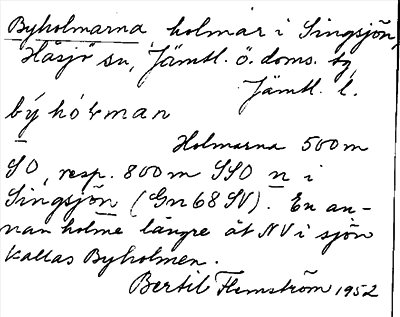 Byholmarna, holmar i Singsjön,
Håsjö sn, Jämtl. ö. doms. tg,
Jämtl. l.
býhòɫman
Holmarna 500 m
SO, resp. 800 m SSO n i
Singsjön (Gn 68 SV). En an-
nan holme längre åt NV i sjön
kallas Byholmen.
Bertil Flemström 1952